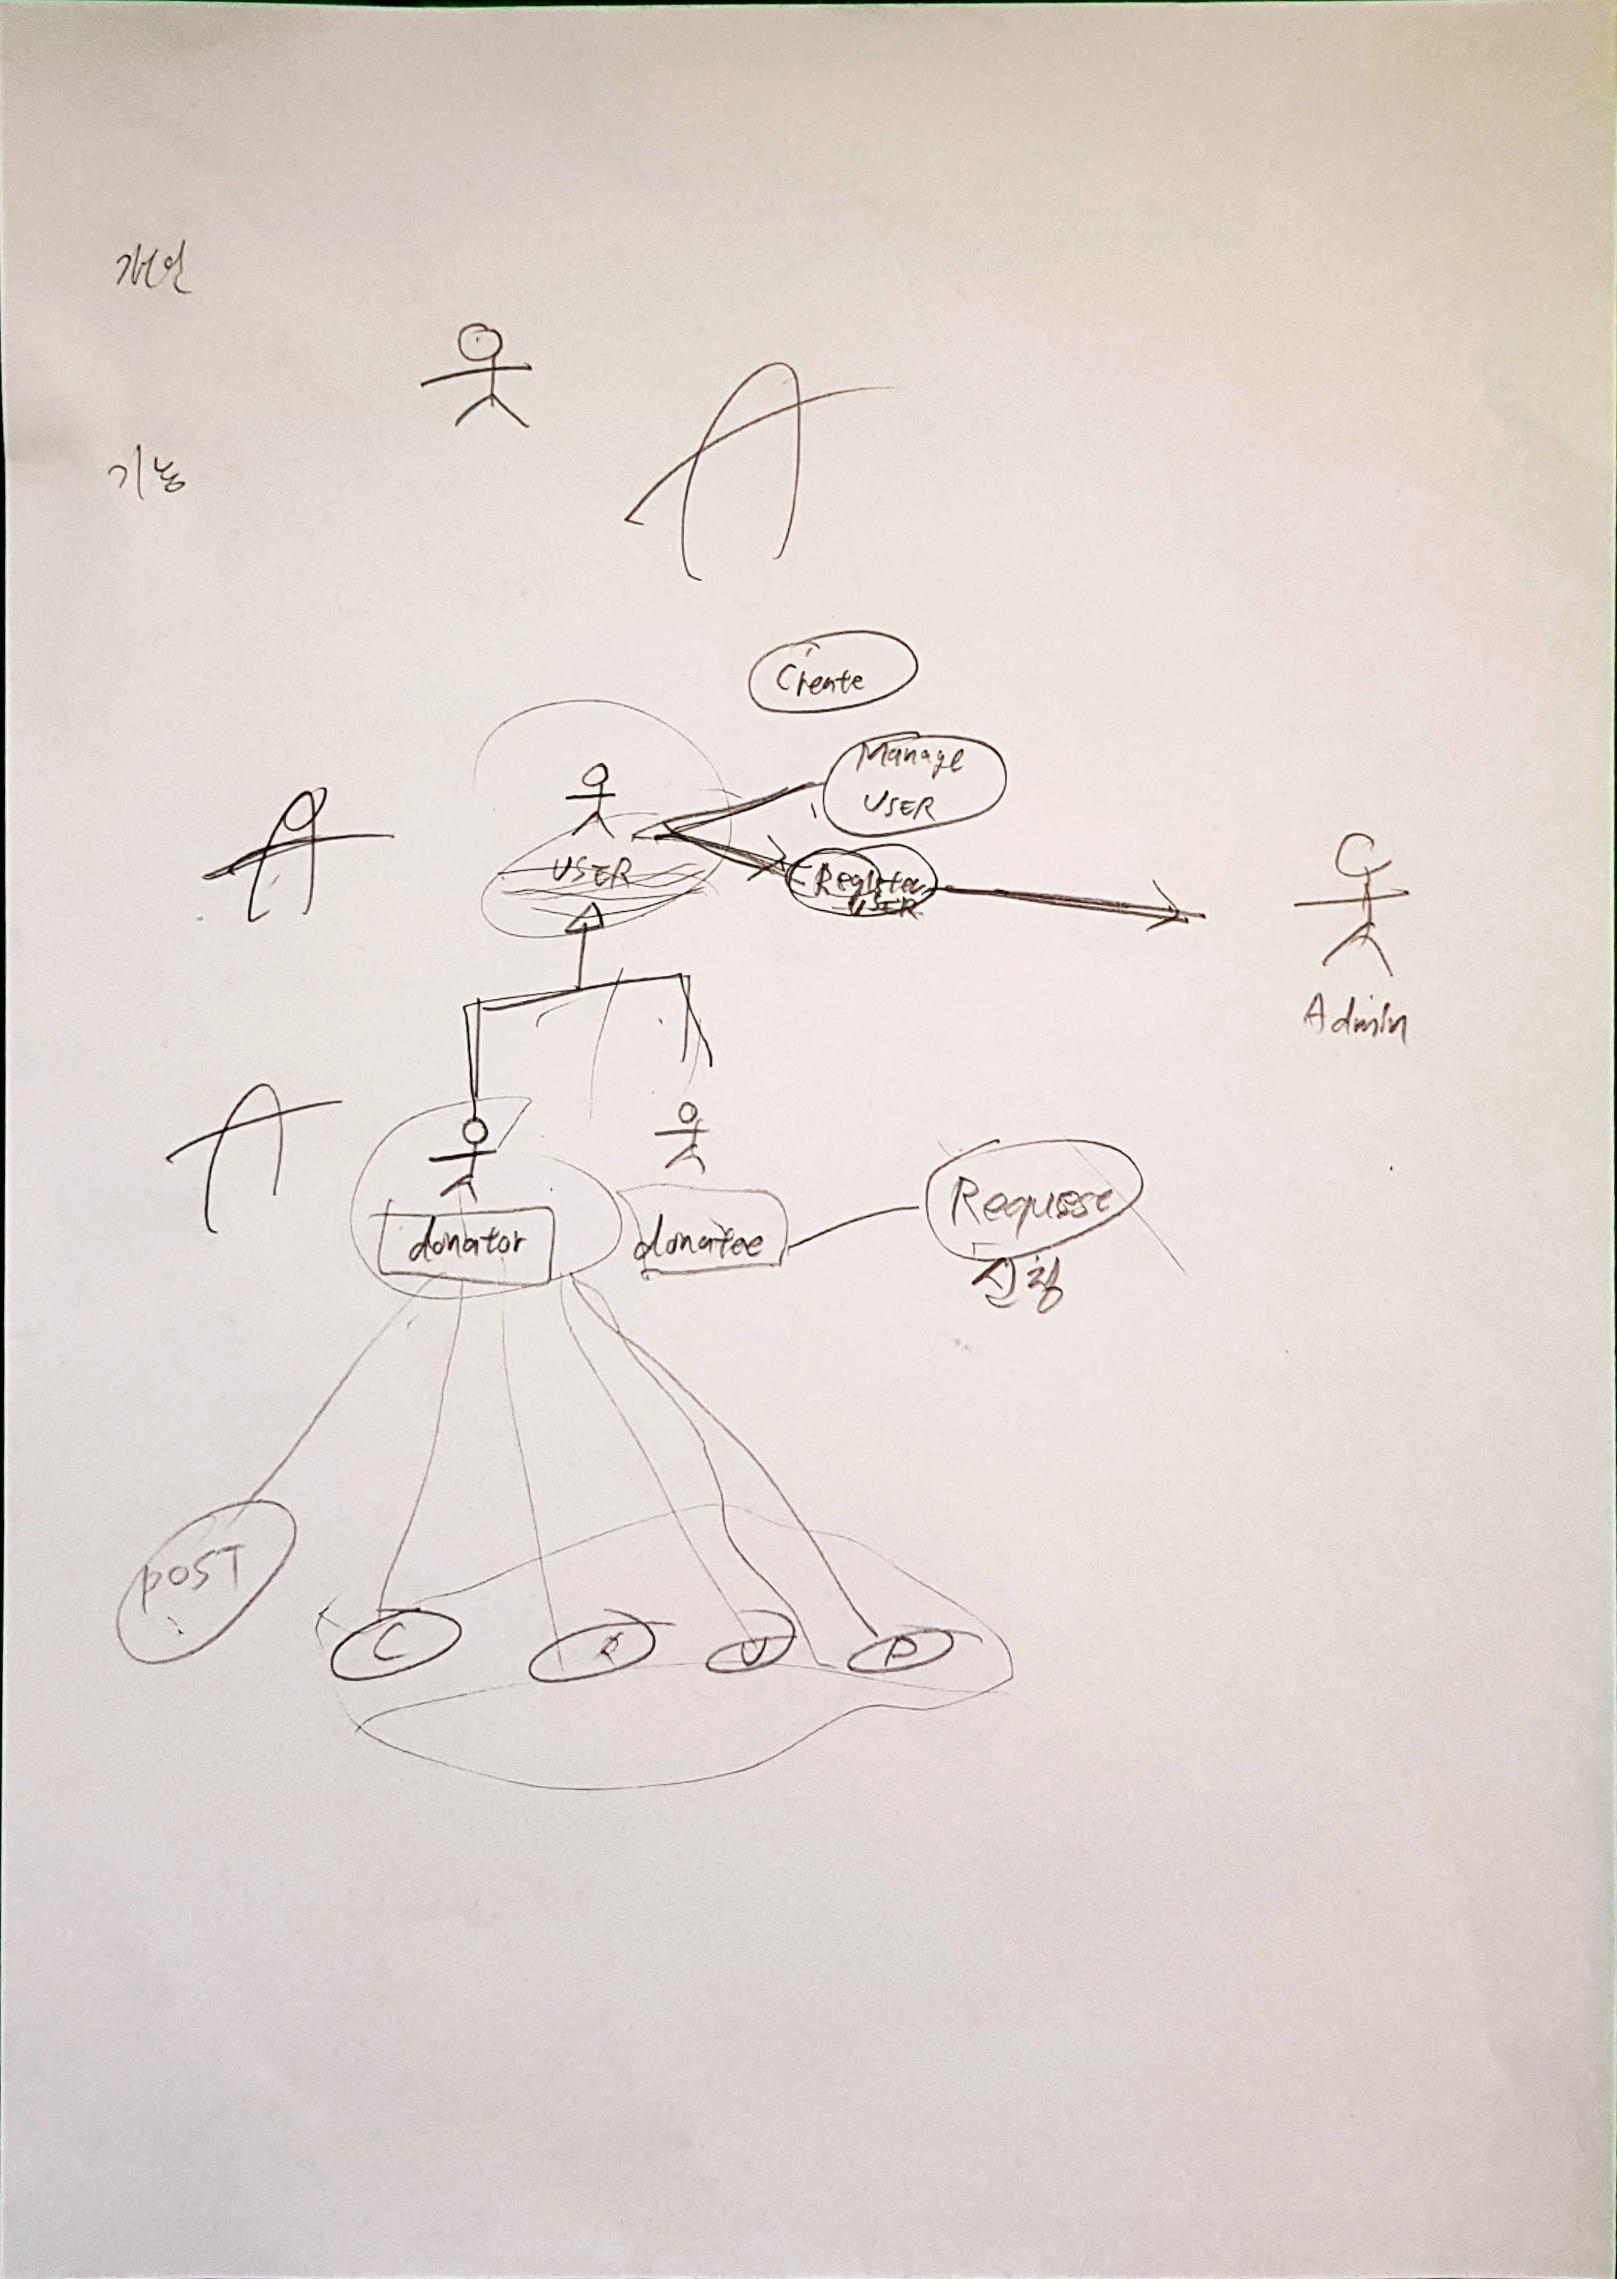 개인
기능
Create
Manage
USER
USER
Register
USER
Admin
donator
donatee
Request
신청
POST
C
R
U
D